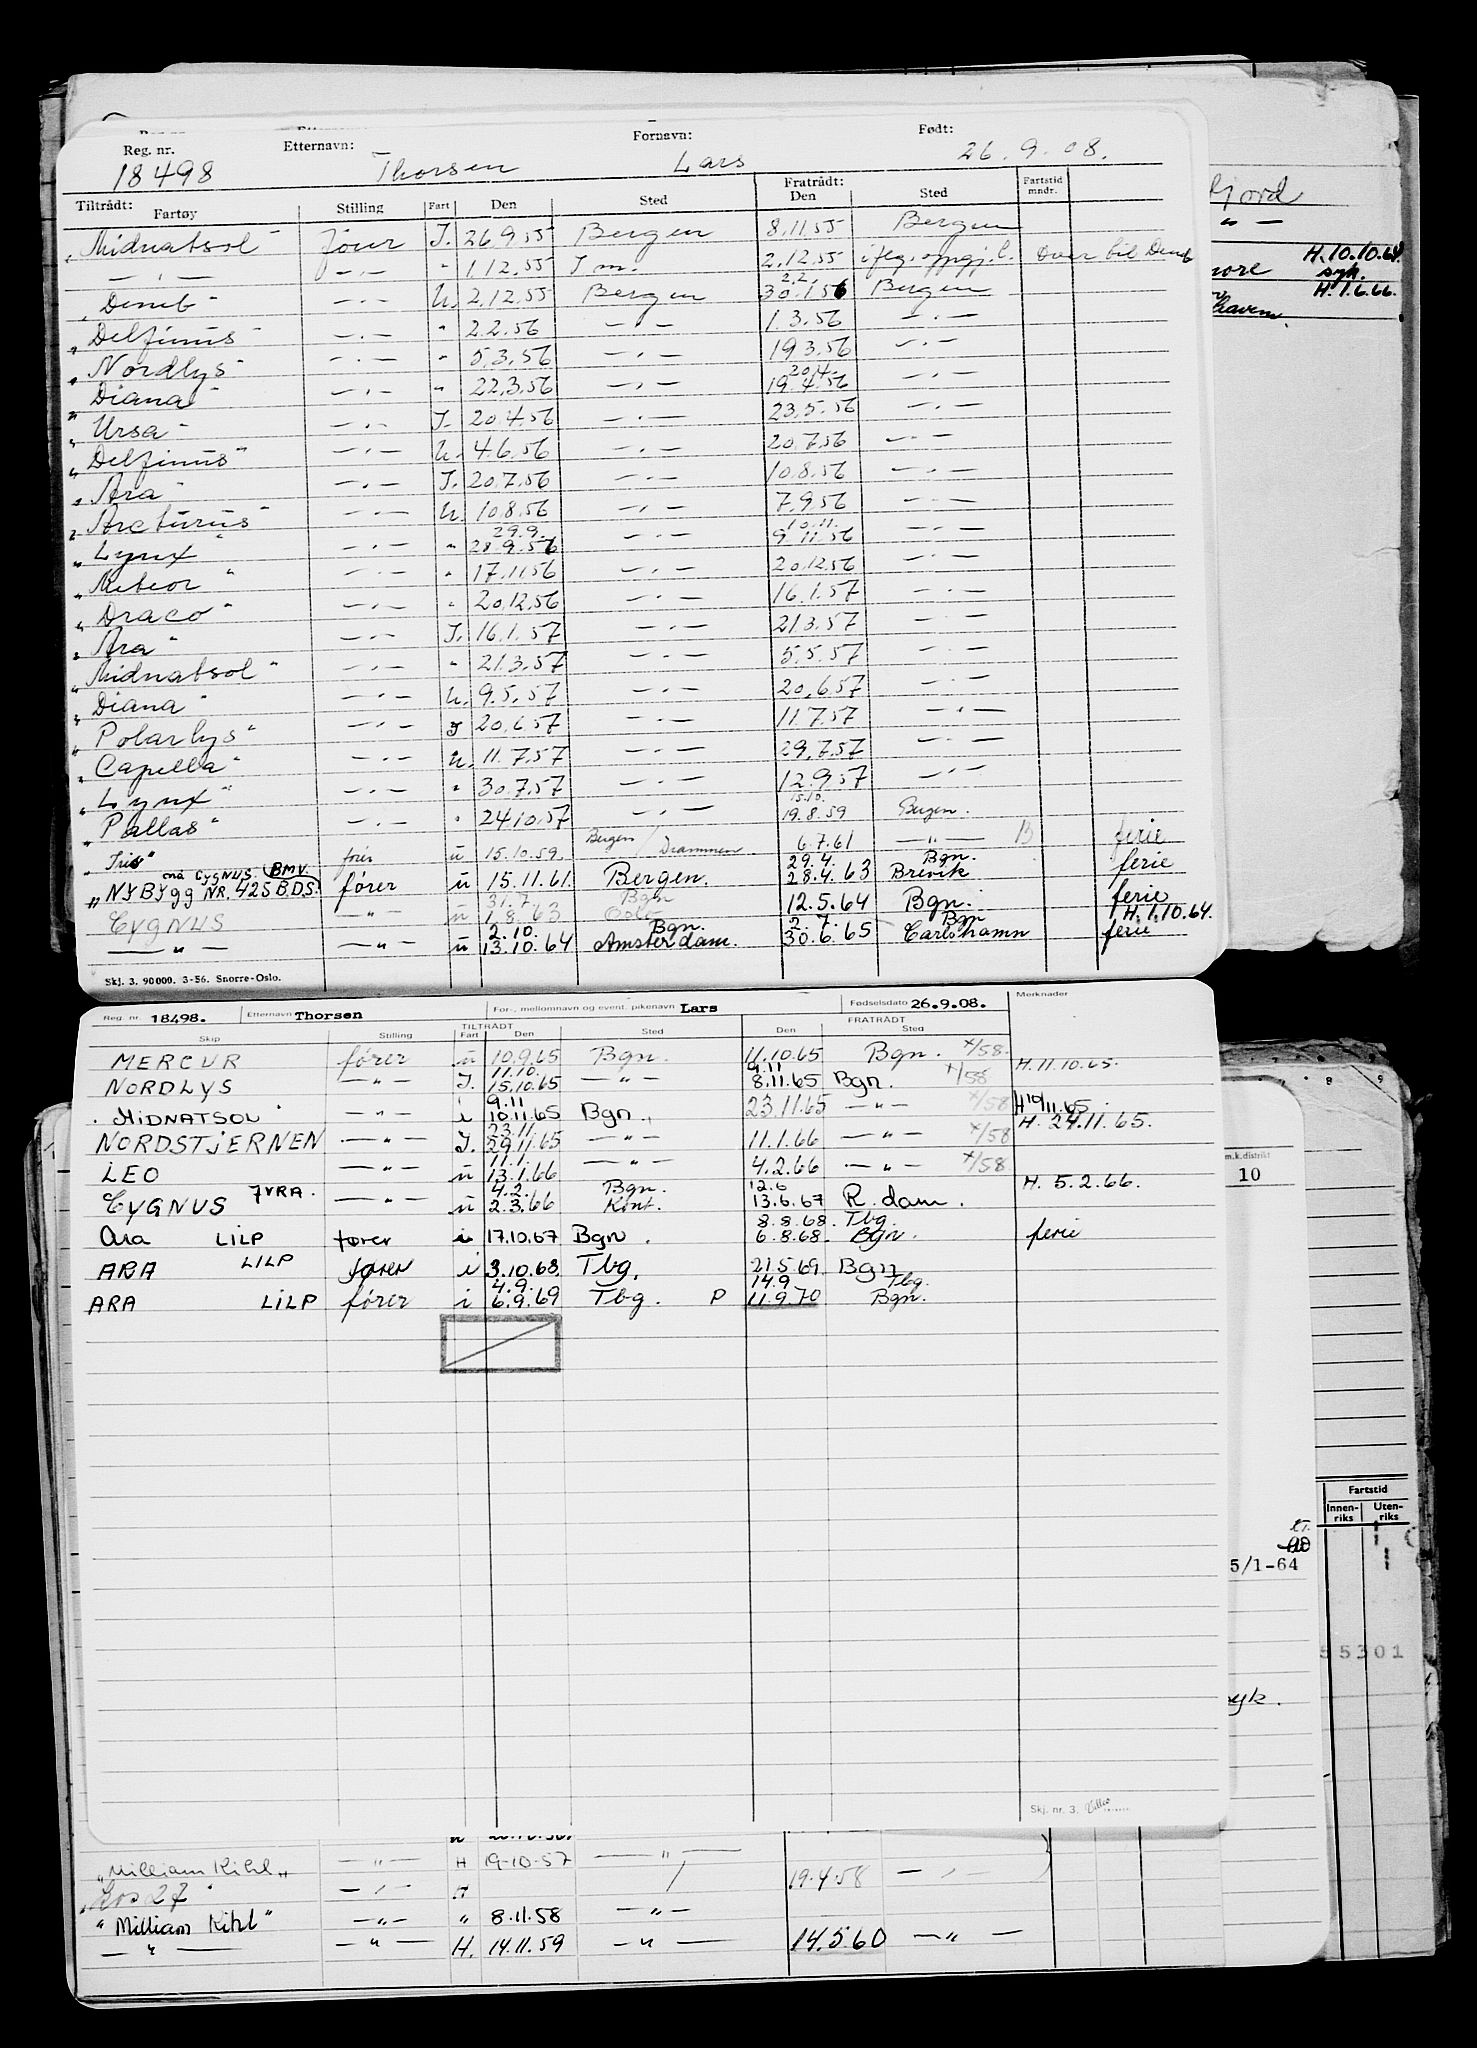 Reg. nr. Etternavn: Fornavn: Født:
18498 Thorsen Lars 26.9.08.
Tiltrådt: Fratrådt: Fartstid mndr.
Fartøy Stilling Fart Den Sted Den Sted
"Midnatsol" fører I. 26.9.55 Bergen 8.11.55 Bergen
— " — — " — " 1.12.55 2.12.55 over til Deneb
"Deneb" — " — U. 2.12.55 Bergen 2.2. 30.1.56 Bergen
"Delfinus" — " — " 2.2.56 — " — 1.3.56 — " —
"Nordlys" — " — " 5.3.56 — " — 19.3.56 — " —
"Diana" — " — " 22.3.56 — " — 20.4. 19.4.56 — " —
"Ursa" — " — I. 20.4.56 — " — 23.5.56 — " —
"Delfinus" — " — U. 4.6.56 — " — 20.7.56 — " —
"Ara" — " — I. 20.7.56 — " — 10.8.56 — " —
"Arcturus" — " — U. 10.8.56 — " — 7.9.56 — " —
"Lynx" — " — " 29.9. 28.9.56 — " — 10.11. 9.11.56 — " —
"Meteor" — " — " 17.11.56 — " — 20.12.56 — " —
"Draco" — " — " 20.12.56 — " — 16.1.57 — " —
"Ara" — " — I. 16.1.57 — " — 21.3.57 — " —
"Midnatsol" — " — " 21.3.57 — " — 5.5.57 — " —
"Diana" — " — U. 9.5.57 — " — 20.6.57 — " —
"Polarlys" — " — I 20.6.57 — " — 11.7.57 — " —
"Capella" — " — U. 11.7.57 — " — 29.7.57 — " —
"Lynx" — " — " 30.7.57 — " — 12.9.57 — " —
"Pallas" — " — " 24.10.57 — " — 15.10. 19.8.59 Bergen.
"Iris" fører u 15.10.59. Bergen / Drammen 6.7.61 — " — ferie
nå CYGNUS. BMV.
"NYBYgg NR. 425 B.D.S. fører u 15.11.61. Bergen. 29.4. 28.4.63 Bgn. Brevik ferie
CYGNUS — " — u 31.7. 1.8.63 Bgn Oslo 12.5.64 Bgn. ferie H.1.10.64.
— " — — " — u 2.10. 13.10.64 Bgn. Amsterdam. 2.7. 30.6.65 Bgn Carlshamn ferie
Skj. 3. 90000. 3-56. Snorre-Oslo.
fjord
— " —
H.10.10.64
syk.
H.1.6.66.
Reg. nr. 18498. Etternavn Thorsen For-, mellomnavn og event. pikenavn Lars Fødselsdato 26.9.08. Merknader
TILTRÅDT FRATRÅDT
Skip Stilling Fart Den Sted Den Sted
MERCUR fører u 10.9.65 Bgn. 11.10.65 Bgn. x/58. H.11.10.65.
NORDLYS — " — I. 11.10. 15.10.65 — " — 9.11 8.11.65 Bgn. x/58
MIDNATSOL — " — i 9.11 10.11.65 Bgn. 23.11.65 — " — x/58 H 10/11.65.
NORDSTJERNEN — " — I. 23.11. 29.11.65 — " — 11.1.66 — " — x/58 H. 24.11.65.
LEO — " — u 11.1. 13.1.66 — " — 4.2.66 — " — x/58
CYGNUS JVRA. — " — u 4.2. 2.3.66 Bgn. Kont. 12.6 13.6.67 R.dam. H. 5.2.66.
Ara LILP fører i 17.10.67 Bgn. 8.8.68. 6.8.68. Tbg. Bgn. ferie
ARA LILP fører i 3.10.68. Tbg. 21.5.69 Bgn
ARA LILP fører i 4.9. 6.9.69 Tbg. P 14.9. 11.9.70 Tbg. Bgn.
Skj. nr. 3.
m.k.distrikt
10
Fartstid
Innen-riks Uten-riks
5/1-64
55301
syk.
"William Kihl" — " — H 19.10.57 — " — 19.4.58 — " —
— " —
"William Kihl" — " — " 8.11.58 — " —
— " — — " — H. 14.11.59 — " — 14.5.60 — " —